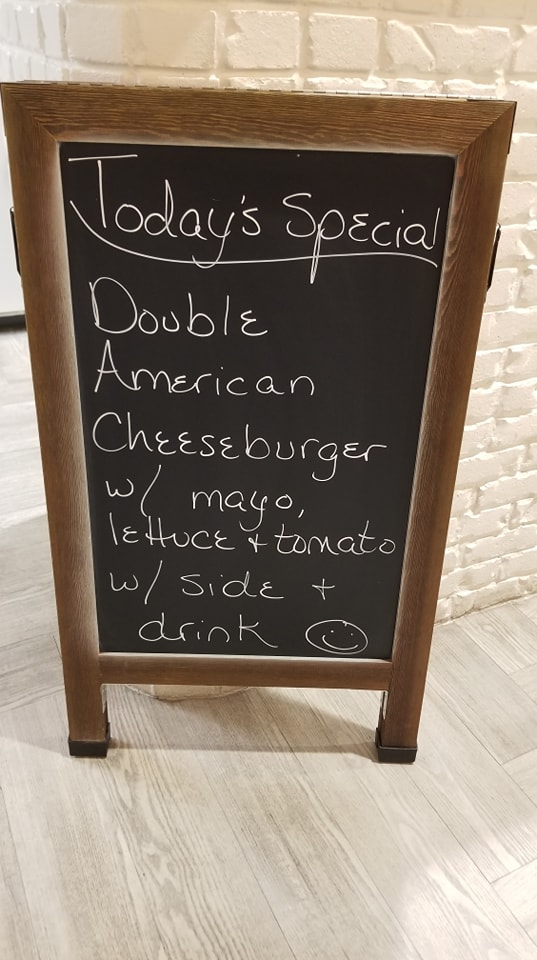 Today's Special
Double
American
Cheeseburger
w/ mayo,
lettuce + tomato
w/ side +
drink